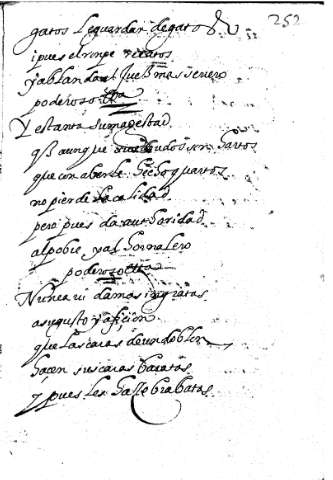 252
gatos le guardan de gatos
i pues el rompe recatos
y ablanda al Juez mas seuero
poderoso etta
Y es tanta su magestad
q̃ aunque son hartos
que con aberle hecho quartos
no pierde calidad
pero pues da authoridad
al pobre y al Jornalero
poderoso etta
Nunca vi damas ingratas
a su gusto y afiçion
que las caras de un doblon
haçen sus caras baratas
y pues les brabatas